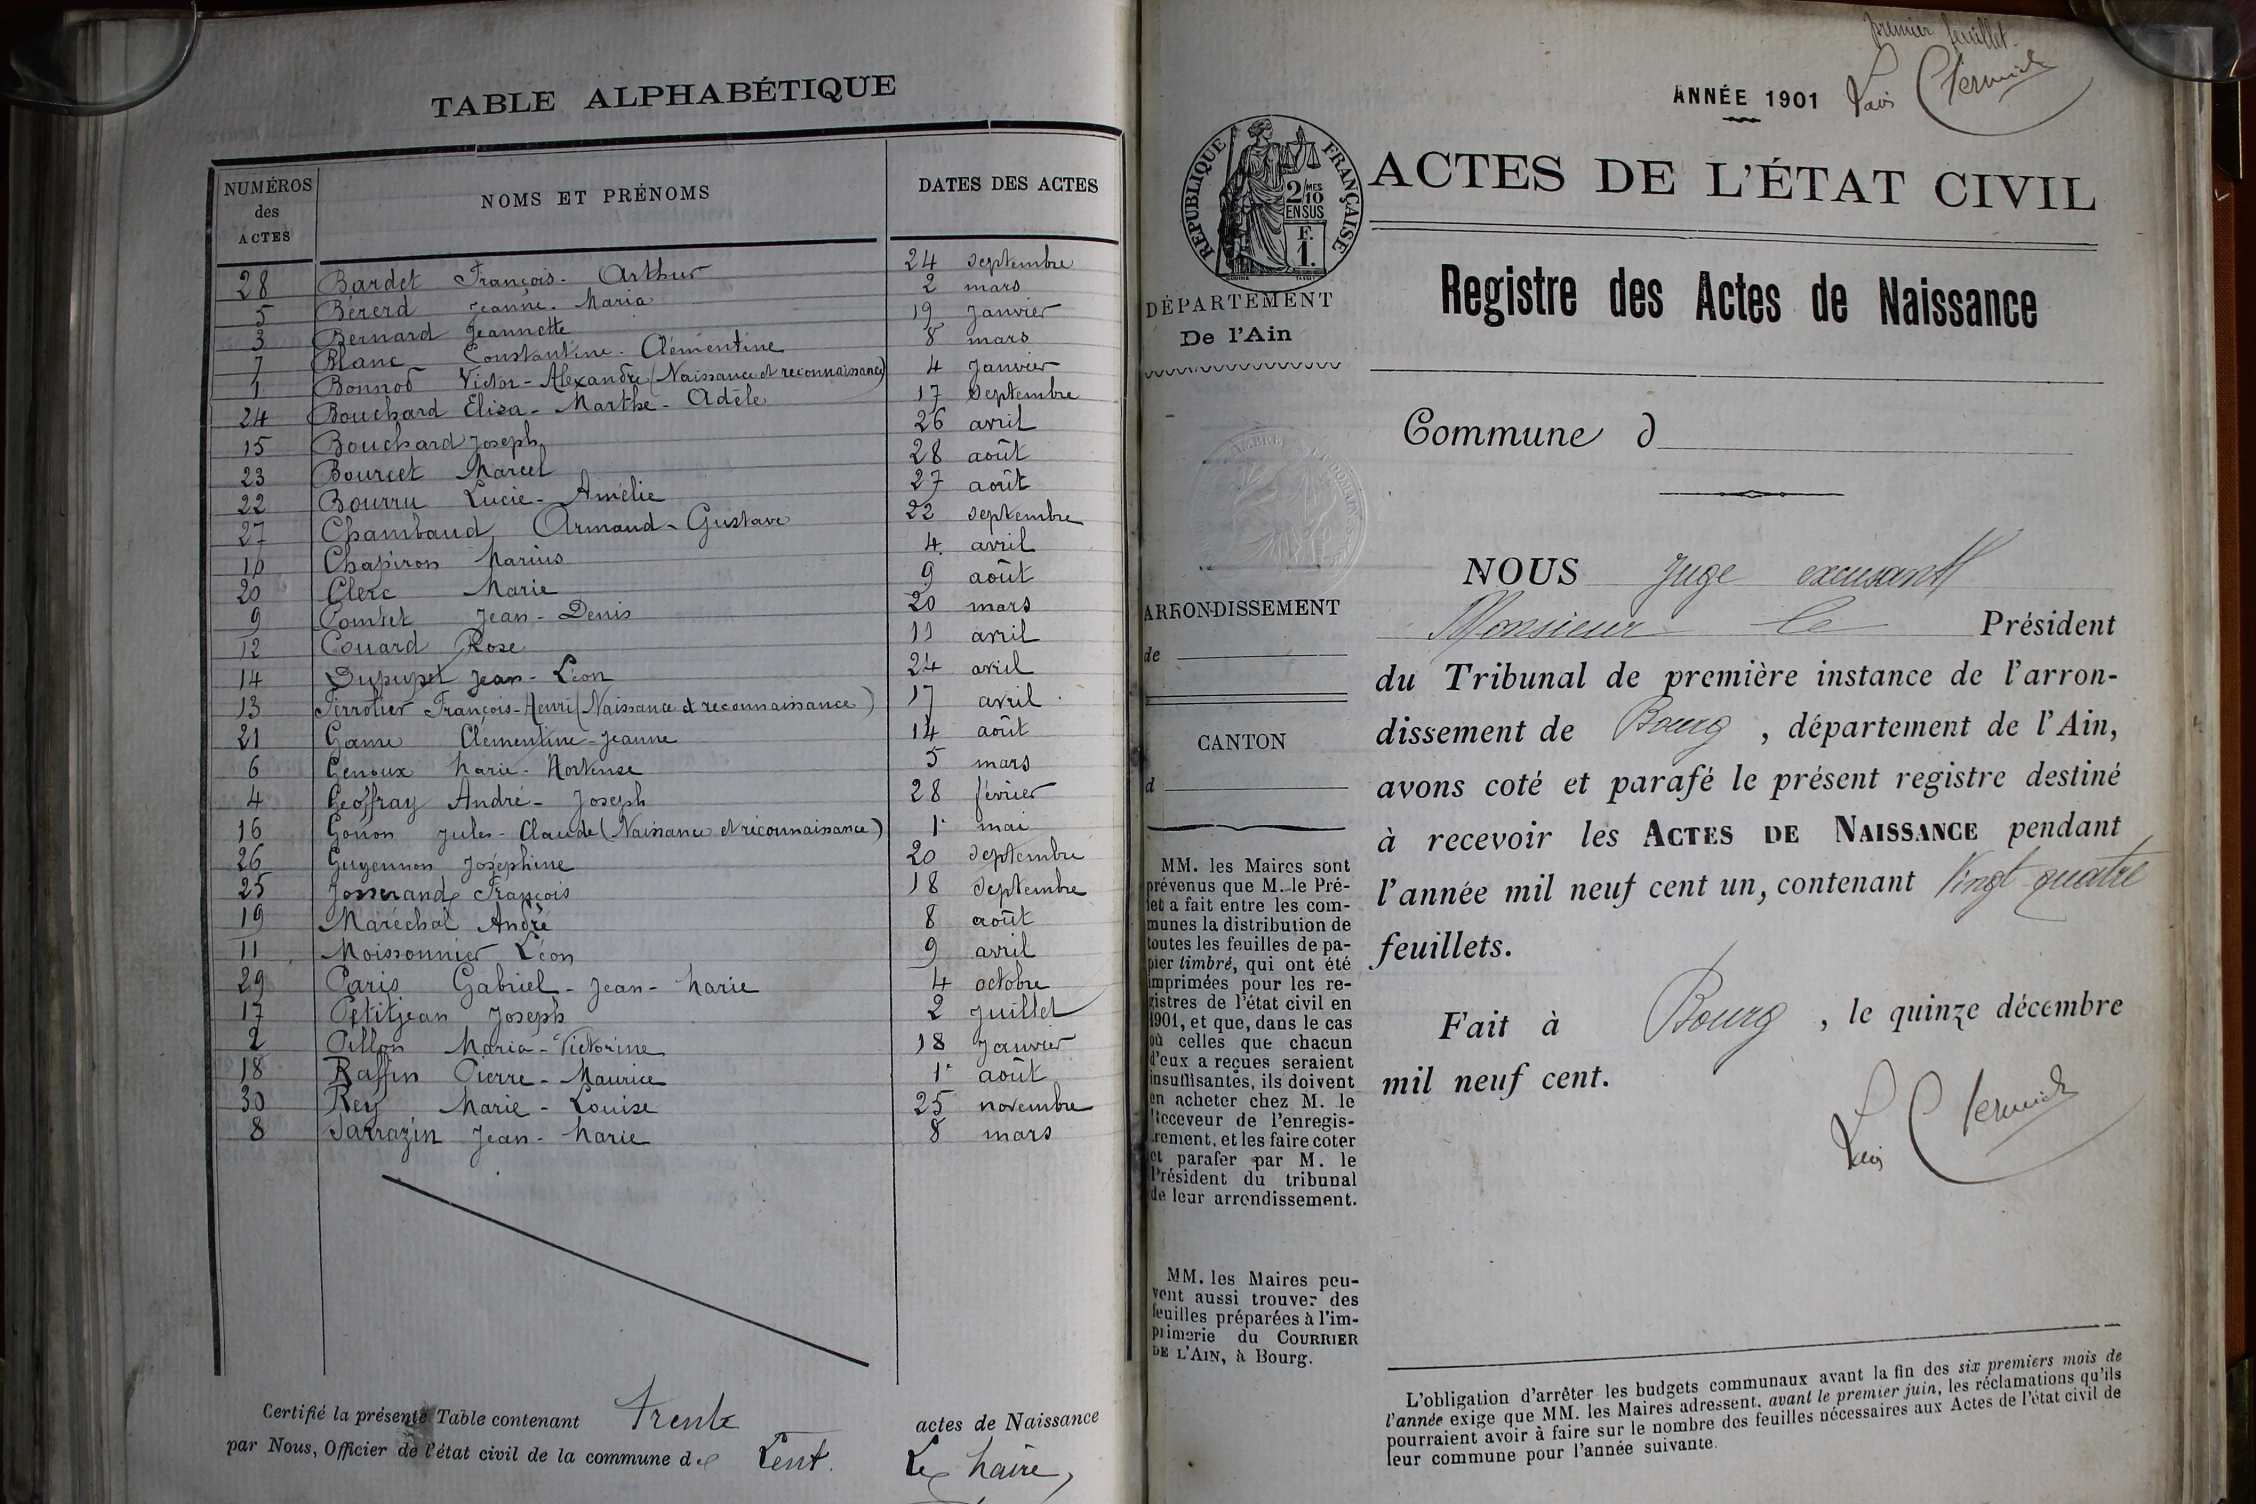 TABLE ALPHABÉTIQUE
NUMÉROS des ACTES NOMS ET PRÉNOMS DATES DES ACTES
28 Bardet François-Arthur 24 septembre
5 Bérerd Jeanne-Maria 2 mars
3 Bernard Jeannette 19 Janvier
7 Blanc Constantine-Clémentine 8 mars
1 Bonnod Victor-Alexandre (Naissance et reconnaissance) 4 Janvier
24 Bouchard Elisa-Marthe-Adèle 17 Septembre
15 Bouchard Joseph 26 avril
23 Bourcet Marcel 28 août
22 Bourru Lucie-Amélie 27 août
27 Chambaud Armand-Gustave 22 septembre
10 Chapiron Marius 4 avril
20 Clerc Marie 9 août
9 Comtet Jean-Denis 20 mars
12 Couard Rose 11 avril
14 Dupupet Jean-Léon 24 avril
13 Ferrolier François-Henri (Naissance et reconnaissance) 17 avril
21 Game Clémentine-Jeanne 14 août
6 Genoux Marie-Hortense 5 mars
4 Geoffray André-Joseph 28 février
16 Gonon Jules-Claude (Naissance et reconnaissance) 1er mai
26 Guyennon Joséphine 20 Septembre
25 Josserand François 18 Septembre
19 Maréchal André 8 août
11 Moissonnier Léon 9 avril
29 Paris Gabriel-Jean-Marie 4 octobre
17 Petitjean Joseph 2 Juillet
2 Pillon Maria-Victorine 18 Janvier
18 Raffin Pierre-Maurice 1er août
30 Rey Marie-Louise 25 novembre
8 Sarrazin Jean-Marie 8 mars
Certifié la présente Table contenant trente actes de Naissance
par Nous, Officier de l'état civil de la commune de Lent.
Le Maire,
premier feuillet.
ANNÉE 1901
RÉPUBLIQUE FRANÇAISE
2/10MES EN SUS
F. 1.
ACTES DE L'ÉTAT CIVIL
DÉPARTEMENT
De l'Ain
Registre des Actes de Naissance
Commune d
ARRONDISSEMENT
de
CANTON
d
MM. les Maires sont
prévenus que M. le Pré-
fet a fait entre les com-
munes la distribution de
toutes les feuilles de pa-
pier timbré, qui ont été
imprimées pour les re-
gistres de l'état civil en
1901, et que, dans le cas
où celles que chacun
d'eux a reçues seraient
insuffisantes, ils doivent
en acheter chez M. le
Receveur de l'enregis-
trement, et les faire coter
et parafer par M. le
Président du tribunal
de leur arrondissement.
MM. les Maires peu-
vent aussi trouver des
feuilles préparées à l'im-
primerie du COURRIER
DE L'AIN, à Bourg.
NOUS Juge excusant
Monsieur le Président
du Tribunal de première instance de l'arron-
dissement de Bourg, département de l'Ain,
avons coté et parafé le présent registre destiné
à recevoir les ACTES DE NAISSANCE pendant
l'année mil neuf cent un, contenant Vingt quatre
feuillets.
Fait à Bourg, le quinze décembre
mil neuf cent.
L'obligation d'arrêter les budgets communaux avant la fin des six premiers mois de
l'année exige que MM. les Maires adressent, avant le premier juin, les réclamations qu'ils
pourraient avoir à faire sur le nombre des feuilles nécessaires aux Actes de l'état civil de
leur commune pour l'année suivante.